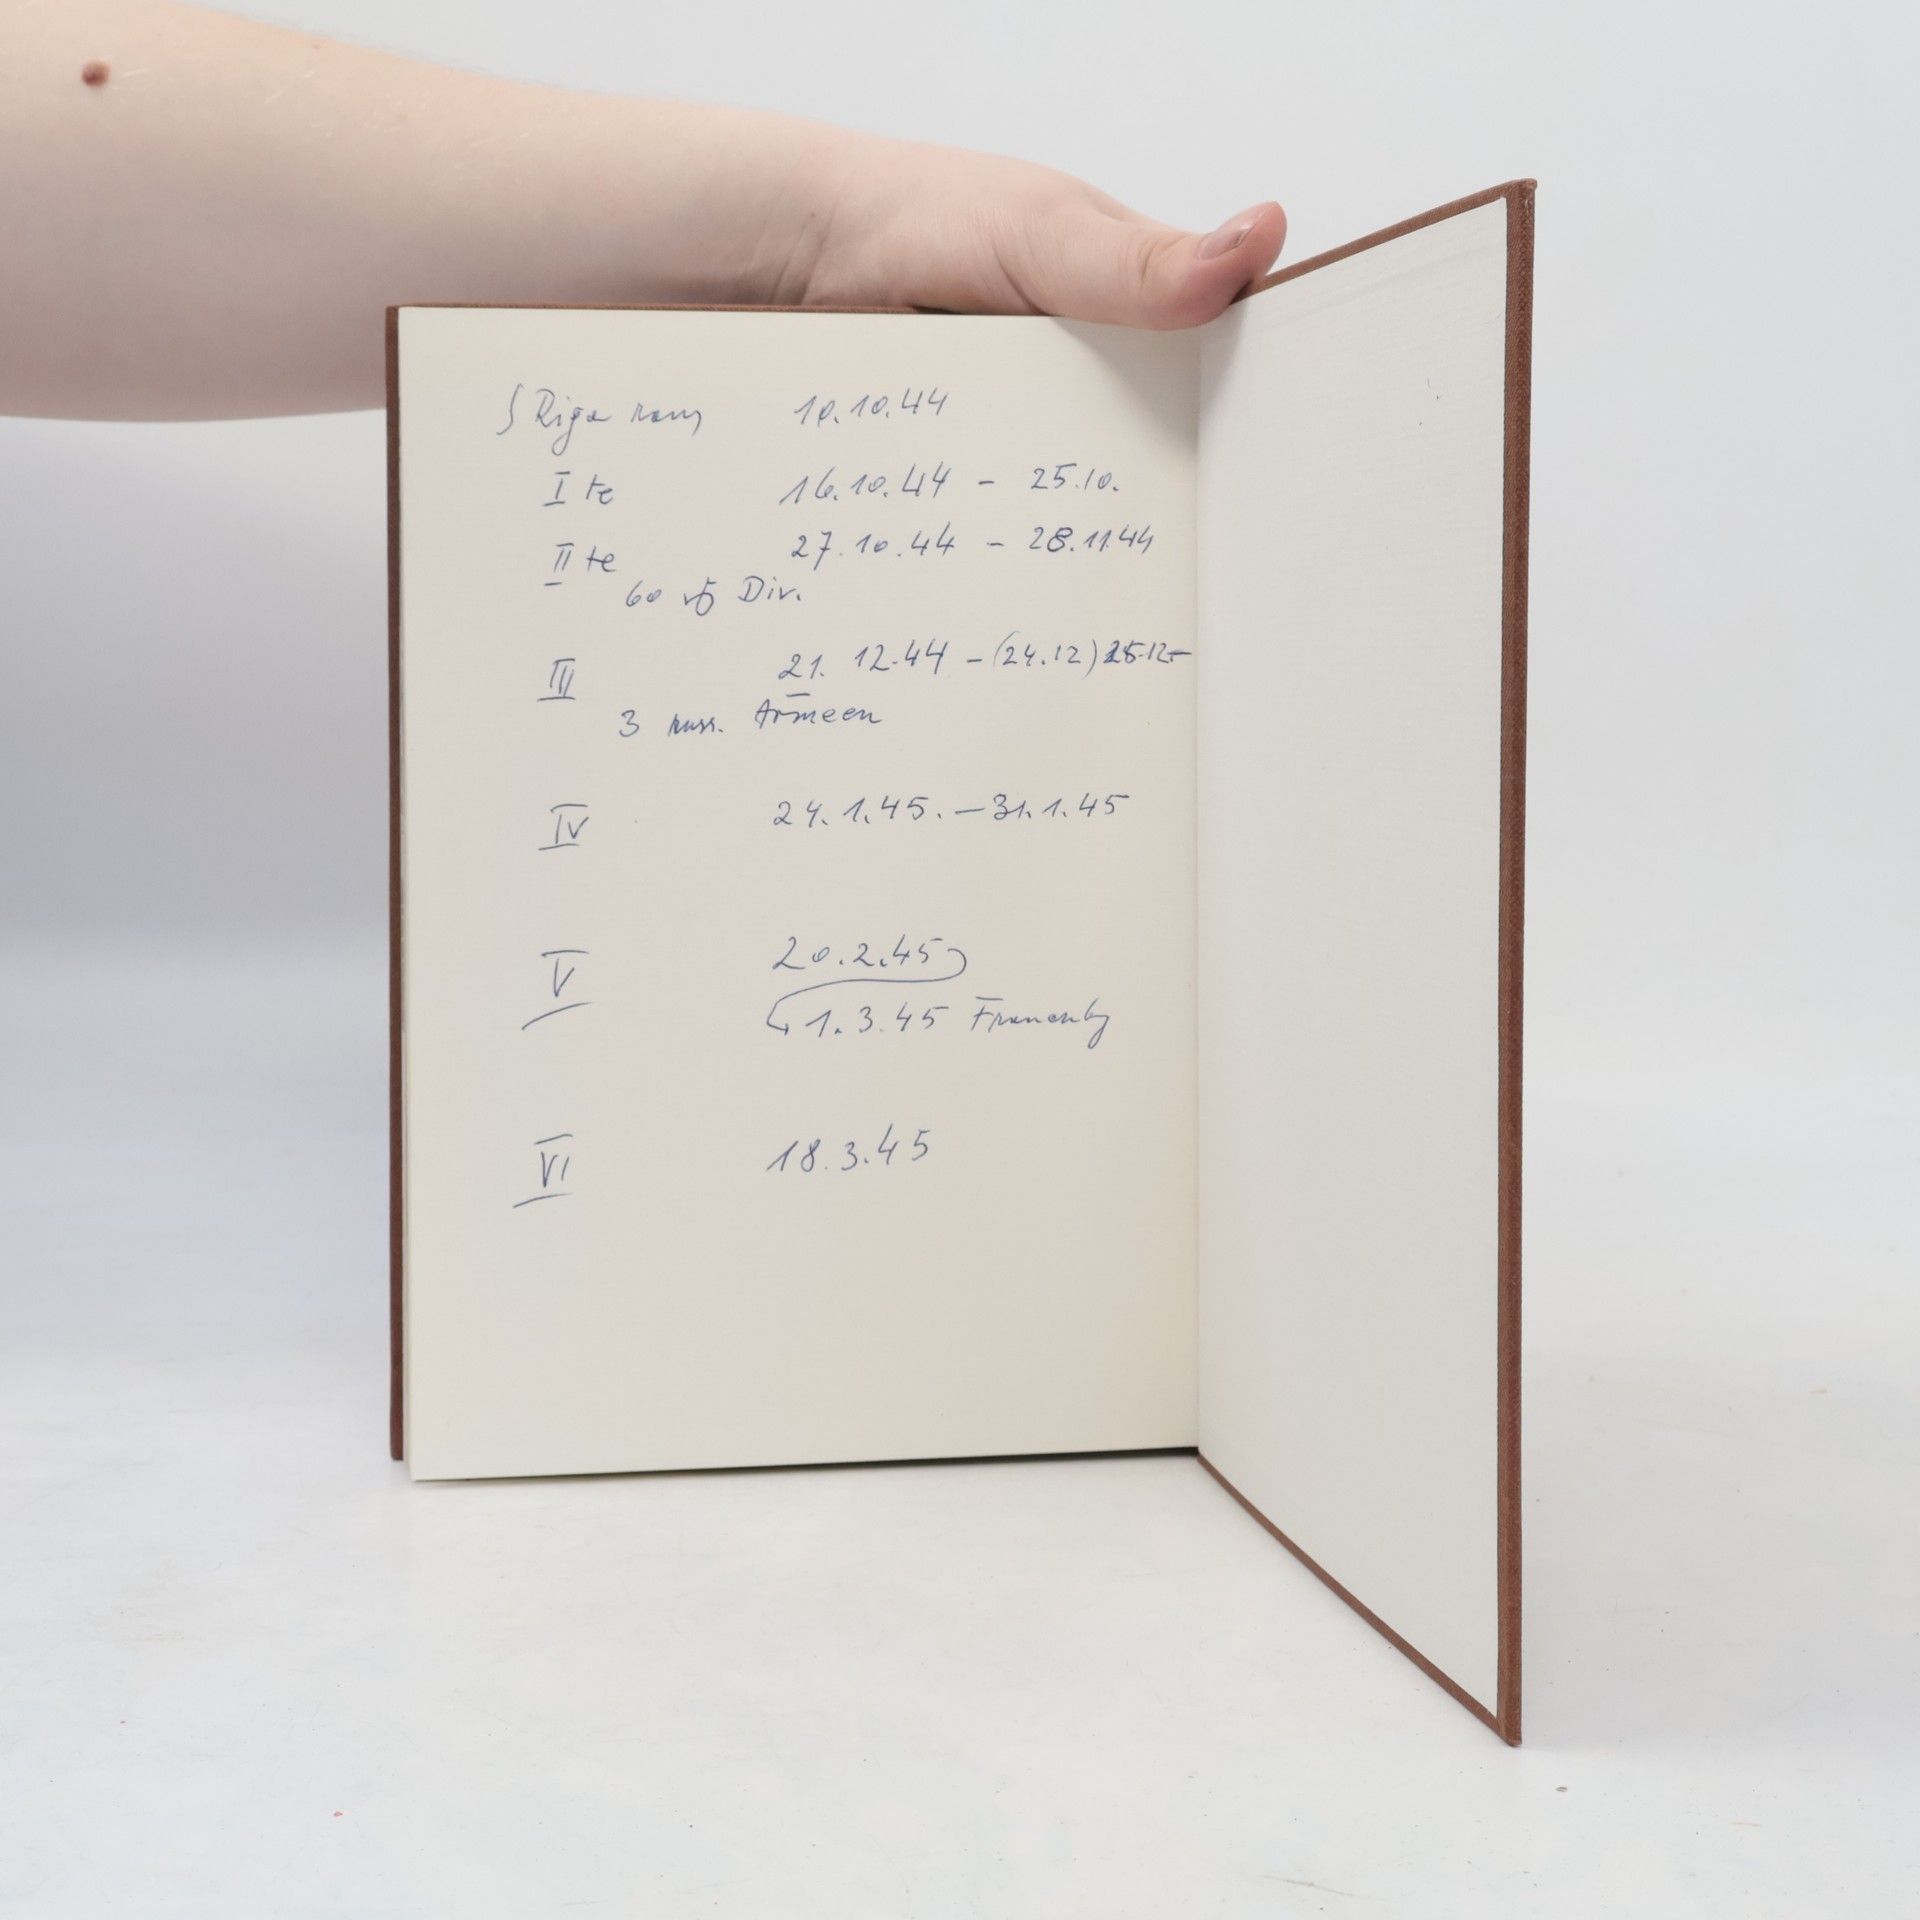 Riga raus 10.10.44
I te 16.10.44 - 25.10.
II te 27.10.44 - 28.11.44
60 Div.
III 21. 12.44 - (24.12)
3 russ. Armeen
IV 24.1.45. - 31.1.45
V 20.2.45
1.3.45 Frauenbg
VI 18.3.45